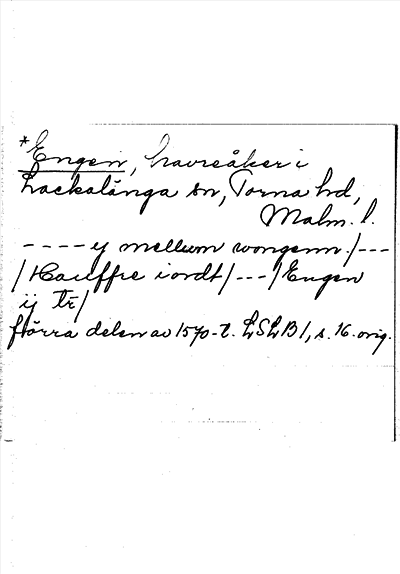 *Engen, havreåker i
Lackalänga sn, Torna hd,
Malm. l.
- - - - ij mellum wongenn /- - -
/Hauffre iordt/ - - - /Engen
ij tr/
förra delen av 1570-t. LSLB 1, s. 16. orig.